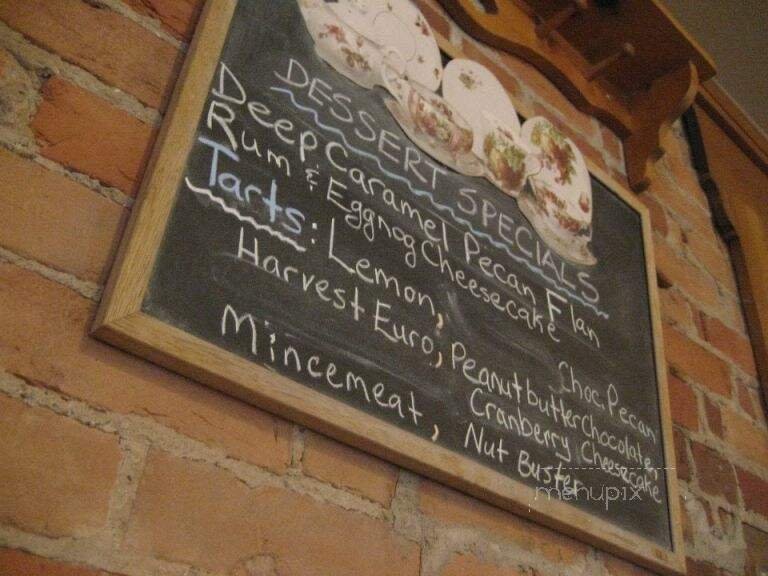 DESSERT SPECIALS
Deep Caramel Pecan Flan
Rum & Eggnog Cheesecake
Tarts: Lemon, Choc. Pecan
Harvest Euro, Peanutbutter Chocolate,
Cranberry Cheesecake
Mincemeat, Nut Buster
menupix